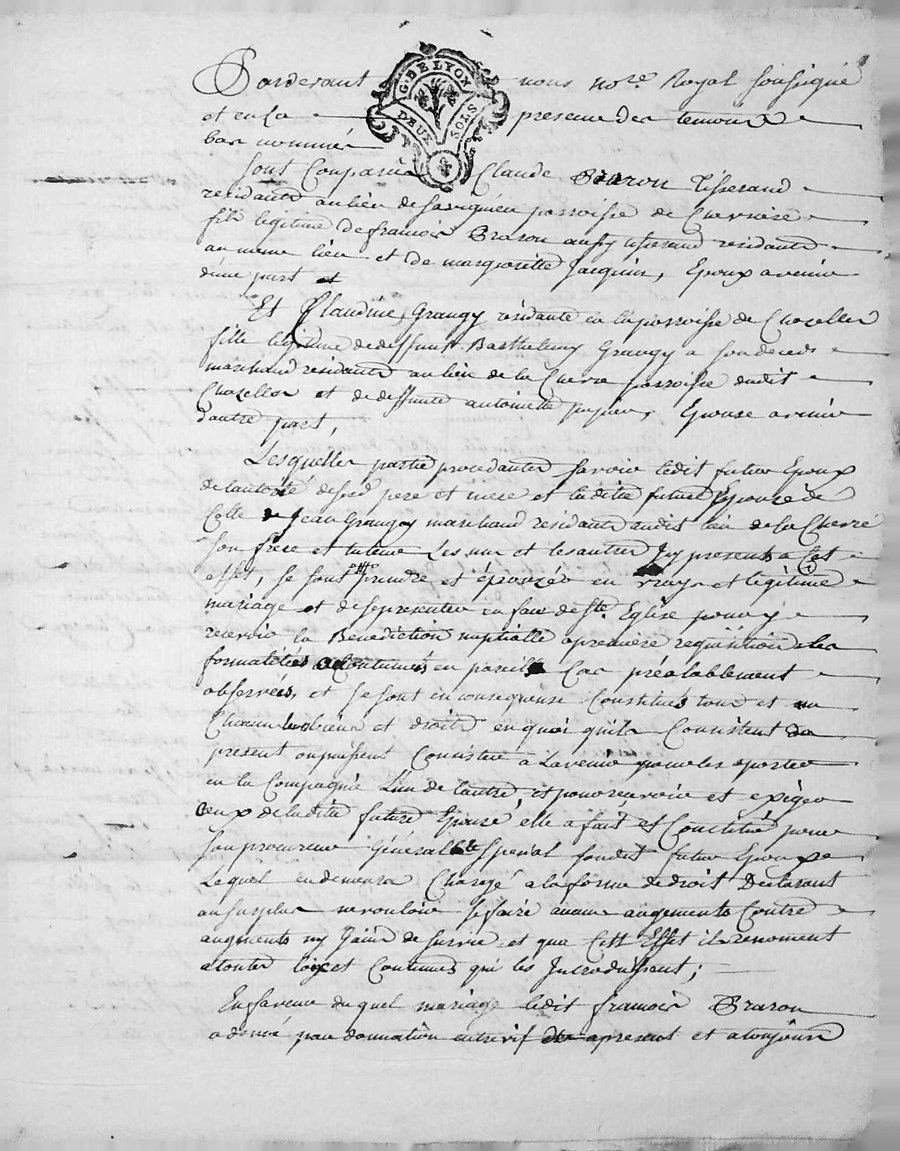 Pardevant nous no.re Royal soussigné
G. DE LYON
DEUX SOLS
et en la presence des temoins
bas nommés
sont Comparus Claude Brazon tisserand
residant au lieu de parroisse de
fils legitime de francois Brazon aussy tisserand residant
au meme lieu et de margueritte Jacquin, Epoux avenir
d'une part et
Et Claudine Grangy residante en la parroisse de Chazelles
fille legitime de deffunt Barthelemy Grangy a son deces
marchand residant au lieu de la Chevre parroisse dudit
Chazelles et de deffunte antoinette Epouse avenir
d'autre part,
Lesquelles parties procedantes savoir ledit futur Epoux
de lautorité de sesd. pere et mere et laditte future Epouse de
Celle de Jean Grangy marchand residant audit lieu de la Chevre
son frere et tuteur Les uns et les autres Icy presents a Cet
effet, se sont prendre et épouser en vray et légitime
mariage et de se presenter en face de Ste. Eglise pour y
recevoir la Benediction nuptialle a premiere requisition les
formalités Coutumes en pareil Cas préalablement
observées, et se sont en consequense Constitués tous et un
Chacun leurs biens et droits en quoi qu'ils Consistent du
present ou puissent Consister à Lavenir pour les aporter
en la Compagnie Lun de lautre, et pour recevoir et exiger
ceux de laditte future Epouse elle a fait et Constitué pour
son procureur Général et spécial sondit futur Epoux
Lequel en demeura Chargé a la forme de droit Declarant
au surplus ne vouloir se faire aucuns augements Contre
augments ny Gains de survie et que Cett Effet ils renoncent
a toutes loix et Coutumes qui les Introduisent;
En faveur du quel mariage ledit francois Brazon
a donné par donnation entre vif a present et a toujours